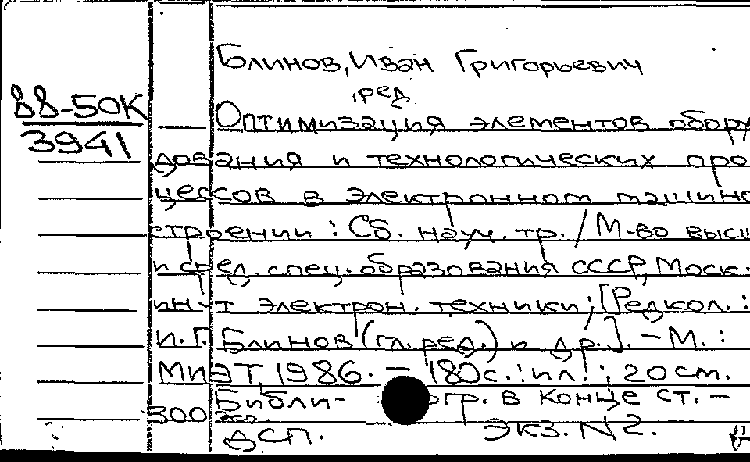 Блинов, Иван Григорьевич
, ред.
88-50К
3941
Оптимизация элементов обору
дования и технологических про
цессов в электронном машино
строении : Сб. науч. тр. / М-во высш.
и сред. спец. образования СССР, Моск.
ин-т электрон. техники; [Редкол.:
И. Г. Блинов (гл. ред.) и др.]. - М. :
МИЭТ, 1986. - 180 с. : ил. ; 20 см.
Библи- огр. в конце ст. -
300
ДСП. Экз. N 2.